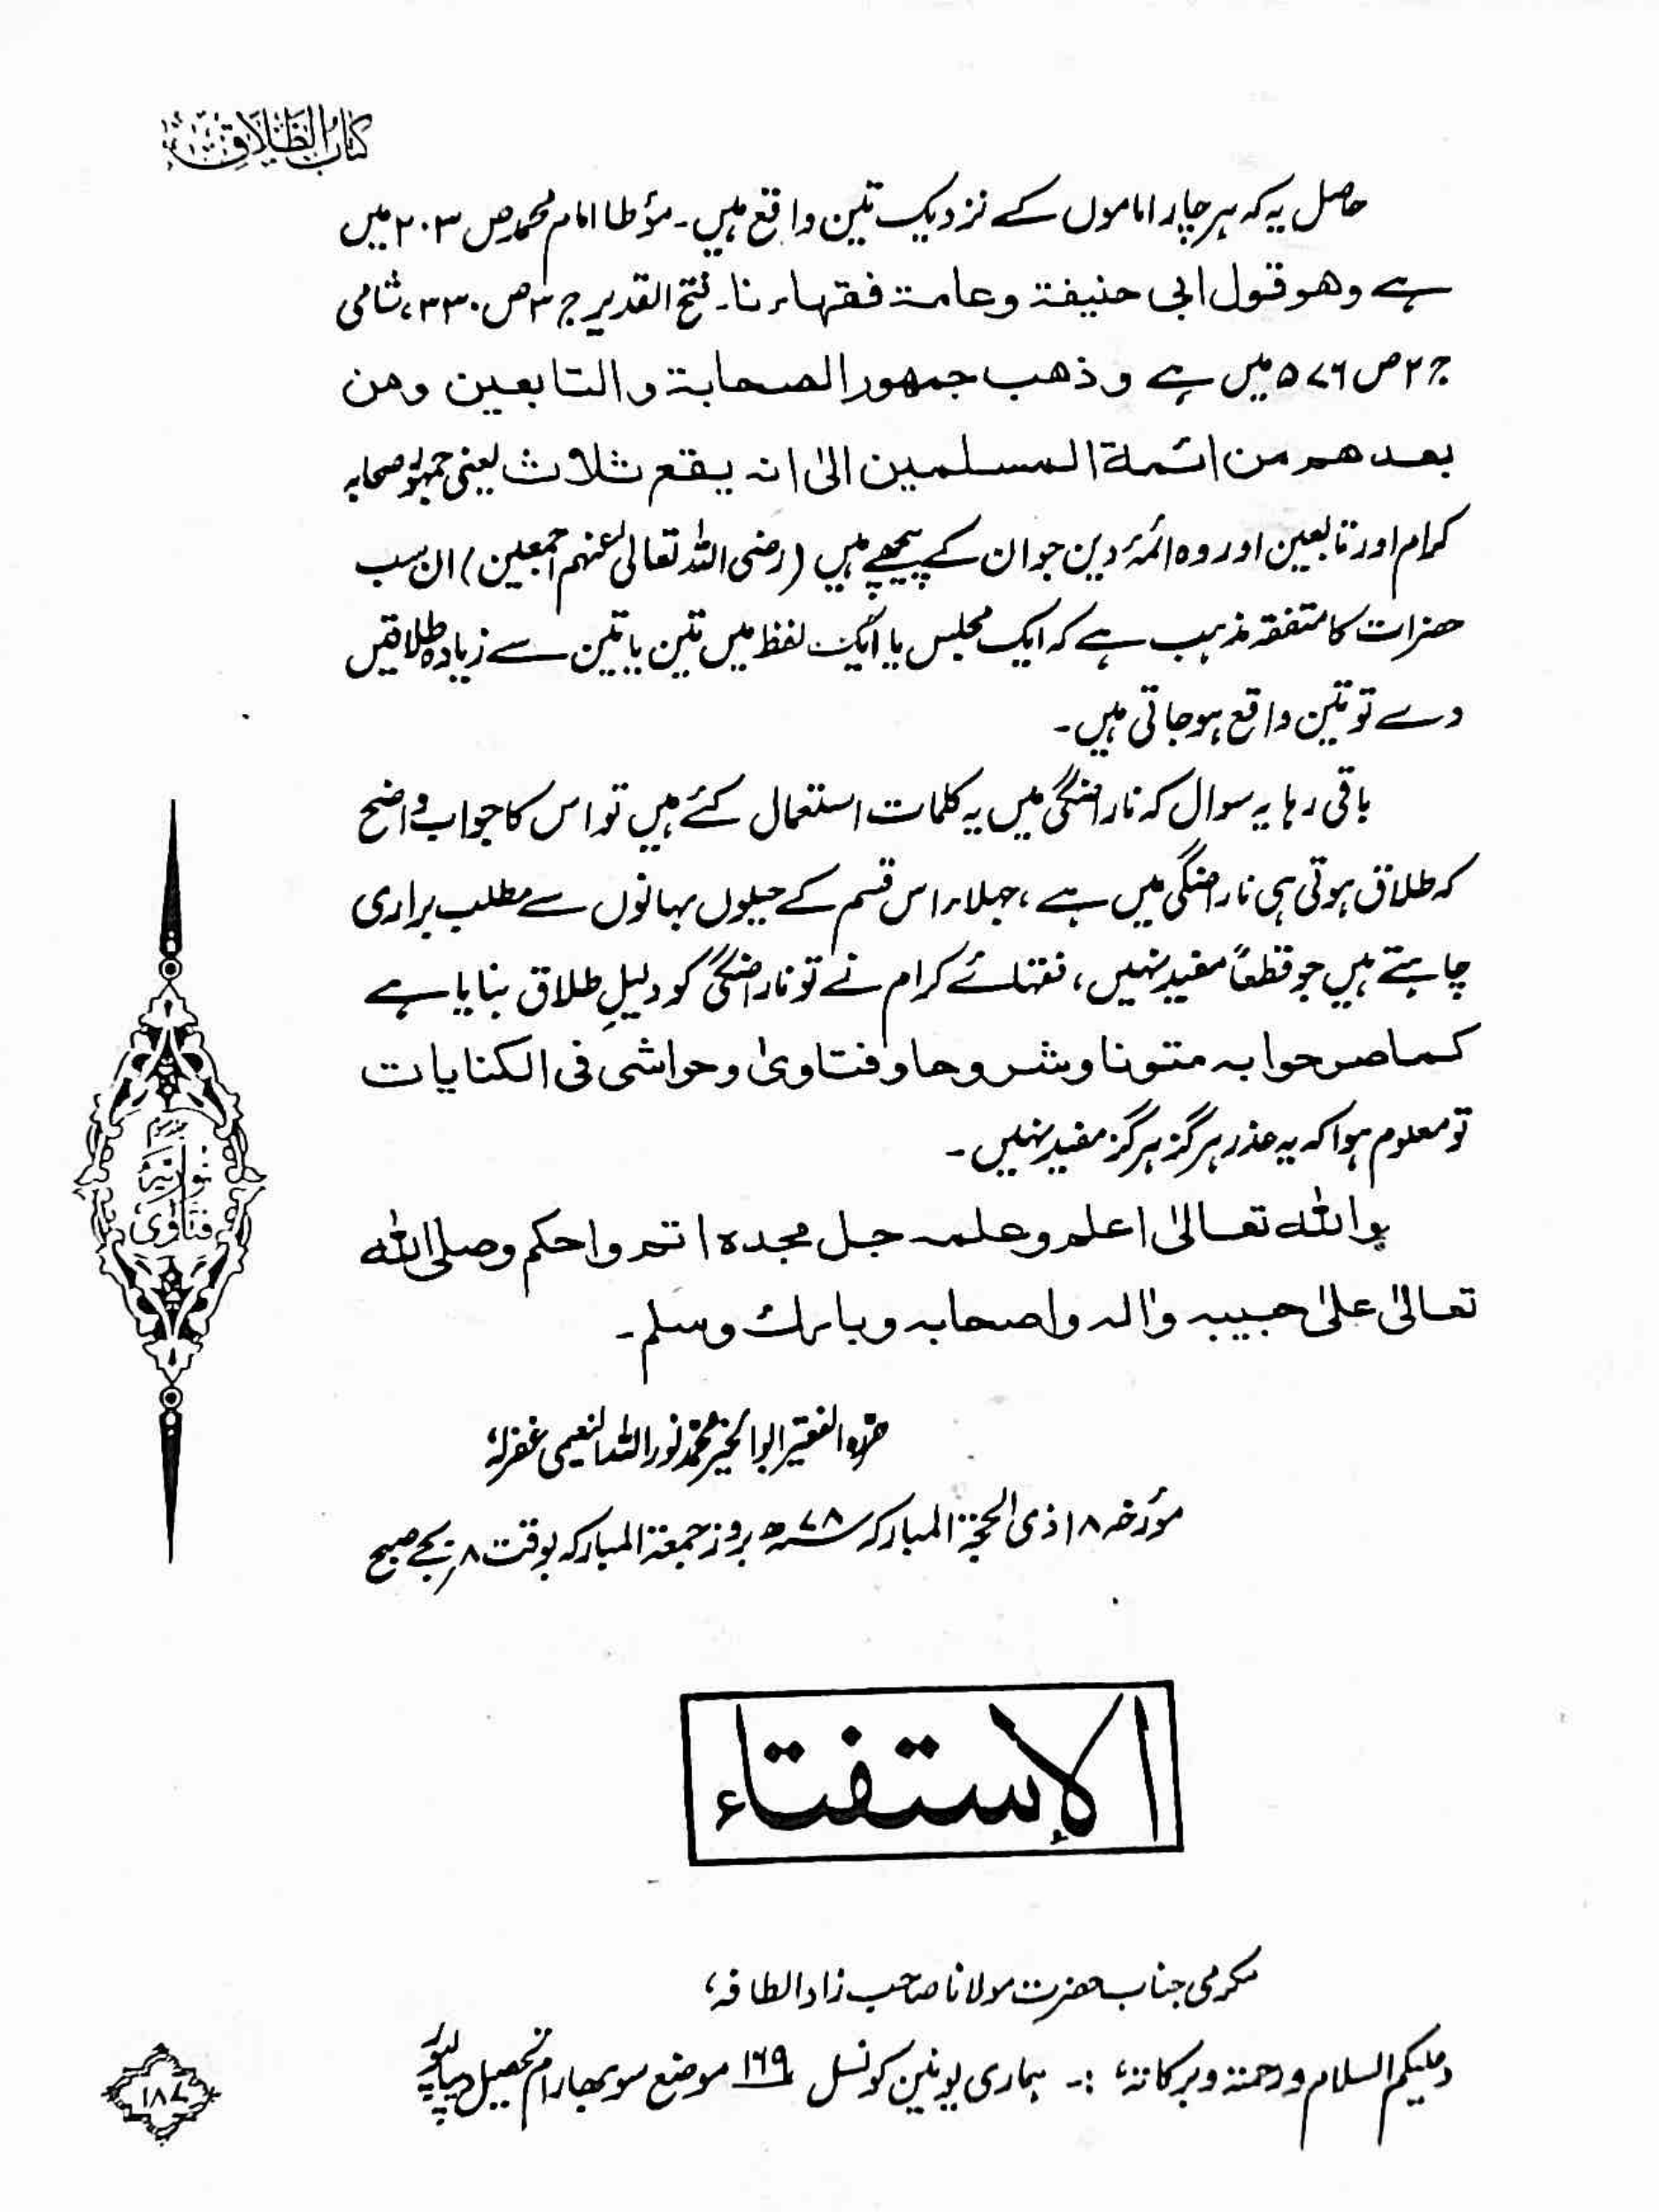 کتاب الطلاق
حاصل یہ کہ ہر چار اماموں کے نزدیک تین واقع ہیں۔ مؤطا امام محمد ص ۲۰۳ میں
ہے وھو قول ابی حنیفۃ وعامۃ فقھاءنا۔ فتح القدیر ج ۳ ص ۳۳۰، شامی
ج ۲ ص ۵۷۶ میں ہے وذھب جمھور الصحابۃ والتابعین ومن
بعدھم من ائمۃ المسلمین الیٰ انہ یقع ثلاث یعنی جمہور صحابہ
کرام اور تابعین اور وہ ائمۂ دین جو ان کے پیچھے ہیں (رضی اللہ تعالیٰ عنہم اجمعین) ان سب
حضرات کا متفقہ مذہب ہے کہ ایک مجلس یا ایک لفظ میں تین یا تین سے زیادہ طلاقیں
دے تو تین واقع ہو جاتی ہیں۔
باقی رہا یہ سوال کہ ناراضگی میں یہ کلمات استعمال کئے ہیں تو اس کا جواب واضح
کہ طلاق ہوتی ہی ناراضگی میں ہے، جہلاء اس قسم کے حیلوں بہانوں سے مطلب براری
چاہتے ہیں جو قطعاً مفید نہیں، فقہائے کرام نے تو ناراضگی کو دلیلِ طلاق بنایا ہے
کما صرحوا بہ متونا وشروحا وفتاویٰ وحواشی فی الکنایات
تو معلوم ہوا کہ یہ عذر ہرگز ہرگز مفید نہیں۔
واللہ تعالیٰ اعلم وعلمہ جل مجدہ اتم واحکم وصلی اللہ
تعالیٰ علیٰ حبیبہ واٰلہ واصحابہ وبارک وسلم۔
حررہ الفقیر ابو الخیر محمد نور اللہ النعیمی غفرلہٗ
مؤرخہ ۱۸ ذی الحجۃ المبارکہ ۷۸ھ بروز جمعۃ المبارکہ بوقت ۸ بجے صبح
فتاویٰ
نوریہ
الإستفتاء
مکرمی جناب حضرت مولانا صاحب زاد الطافہ،
وعلیکم السلام ورحمتہ وبرکاتہ، :۔ ہماری یونین کونسل ۱۶۹ موضع سوبھارام تحصیل دیپالپور
۱۸۷